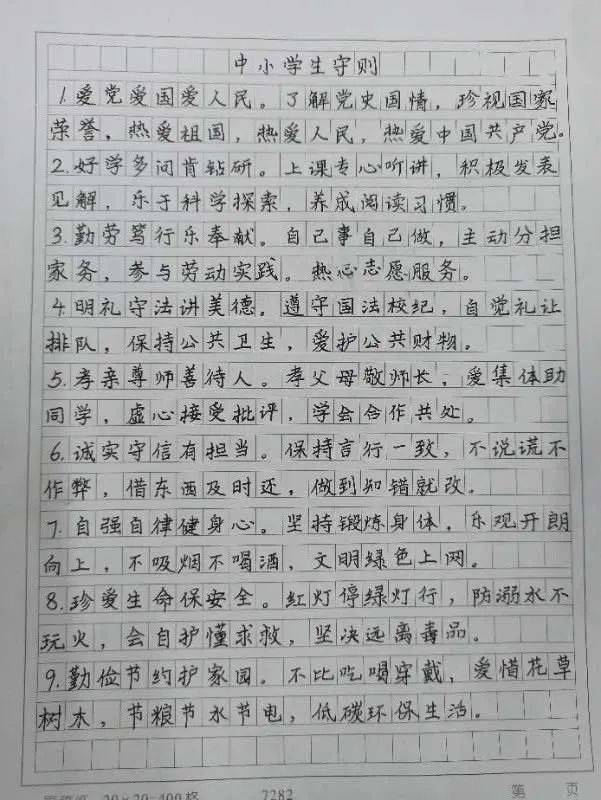 中小学生守则
1.爱党爱国爱人民。了解党史国情，珍视国家
荣誉，热爱祖国，热爱人民，热爱中国共产党。
2.好学多问肯钻研。上课专心听讲，积极发表
见解，乐于科学探索，养成阅读习惯。
3.勤劳笃行乐奉献。自己事自己做，主动分担
家务，参与劳动实践。热心志愿服务。
4.明礼守法讲美德。遵守国法校纪，自觉礼让
排队，保持公共卫生，爱护公共财物。
5.孝亲尊师善待人。孝父母敬师长，爱集体助
同学，虚心接受批评，学会合作共处。
6.诚实守信有担当。保持言行一致，不说谎不
作弊，借东西及时还，做到知错就改。
7.自强自律健身心。坚持锻炼身体，乐观开朗
向上，不吸烟不喝酒，文明绿色上网。
8.珍爱生命保安全。红灯停绿灯行，防溺水不
玩火，会自护懂求救，坚决远离毒品。
9.勤俭节约护家园。不比吃喝穿戴，爱惜花草
树木，节粮节水节电，低碳环保生活。
20×20=400格 7282 第 页